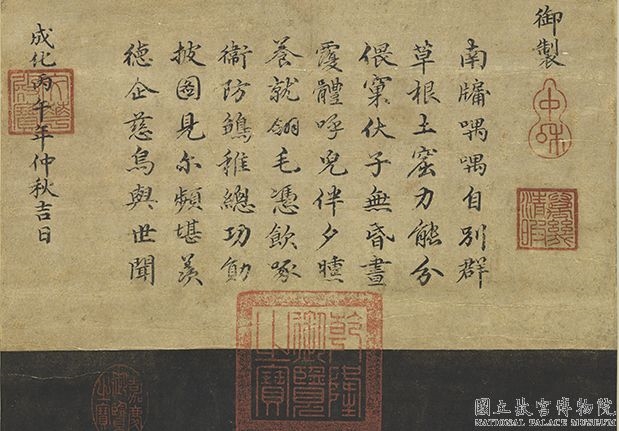 御製
南牖喁喁自別群
草根土窟力能分
偎窠伏子無昏晝
覆體呼兒伴夕曛
養就翎毛憑飲啄
衛防鶵稚總功勤
披圖見尔頻堪羨
德企慈烏與世聞
成化丙午年仲秋吉日
中和
乾隆御覽之寶
嘉慶御覽之寶
國立故宮博物院
NATIONAL PALACE MUSEUM